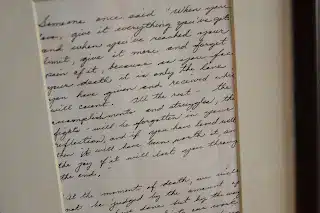 Someone once said "When you
love, give it everything you've got
and when you've reached your
limit, give it more and forget
pain of it, because as you face
your death it is only the love
you have given and received which
will count. All the rest - the
accomplishments and struggles, the
fights - will be forgotten in your
reflection, and if you have loved well
then it will have been worth it, and
the joy of it will last you through
the end.
At the moment of death, we will
not be judged by the amount of
have done but by the